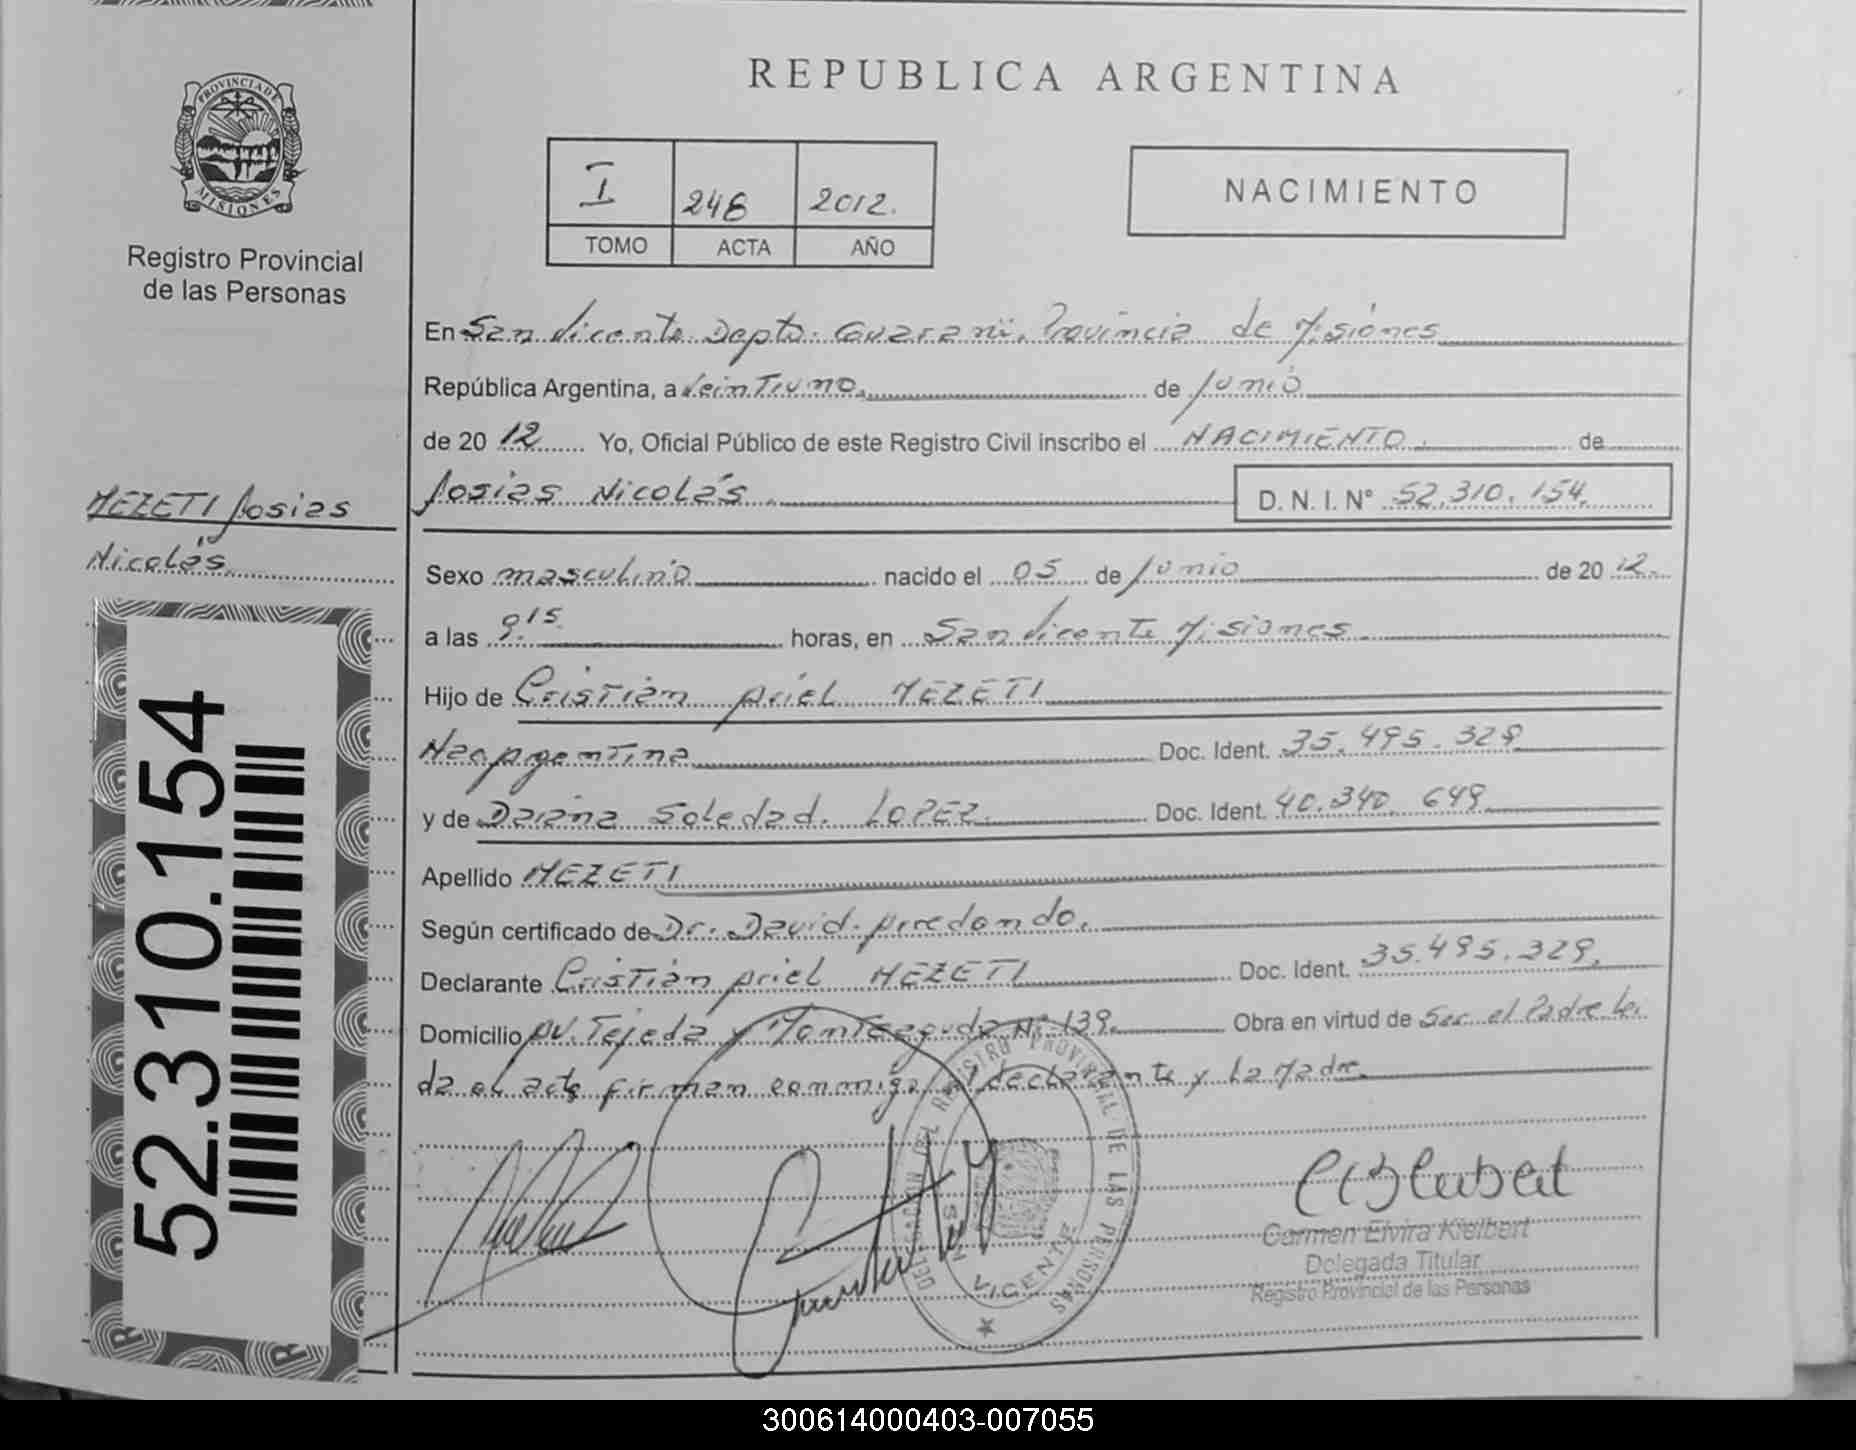 PROVINCIA DE
MISIONES
Registro Provincial
de las Personas
MEZETI Josias
Nicolás
52.310.154
REPUBLICA ARGENTINA
I 248 2012.
TOMO ACTA AÑO
NACIMIENTO
En San Vicente Depto. Guaraní, Provincia de Misiones
República Argentina, a Veintiuno, de Junio
de 20 12 Yo, Oficial Público de este Registro Civil inscribo el NACIMIENTO. de
Josias Nicolás. D. N. I. N° 52.310.154.
Sexo masculino nacido el 05 de Junio de 20 12.
a las 9,15. horas, en San Vicente Misiones.
Hijo de Cristian Ariel MEZETI
Nac Argentina Doc. Ident. 35.495.329
y de Daiana Soledad. LOPEZ. Doc. Ident. 40.340.649
Apellido MEZETI
Según certificado de Dr. David. Arredondo.
Declarante Cristian Ariel MEZETI Doc. Ident. 35.495.329.
Domicilio Av. Tejeda y Monteagudo N° 139. Obra en virtud de Ser el Padre Lei
da el acta firman conmigo, el declarante y La Madre.
DELEGACION DEL REGISTRO PROVINCIAL DE LAS PERSONAS
SAN VICENTE
Carmen Elvira Kielbert
Delegada Titular
Registro Provincial de las Personas
300614000403-007055